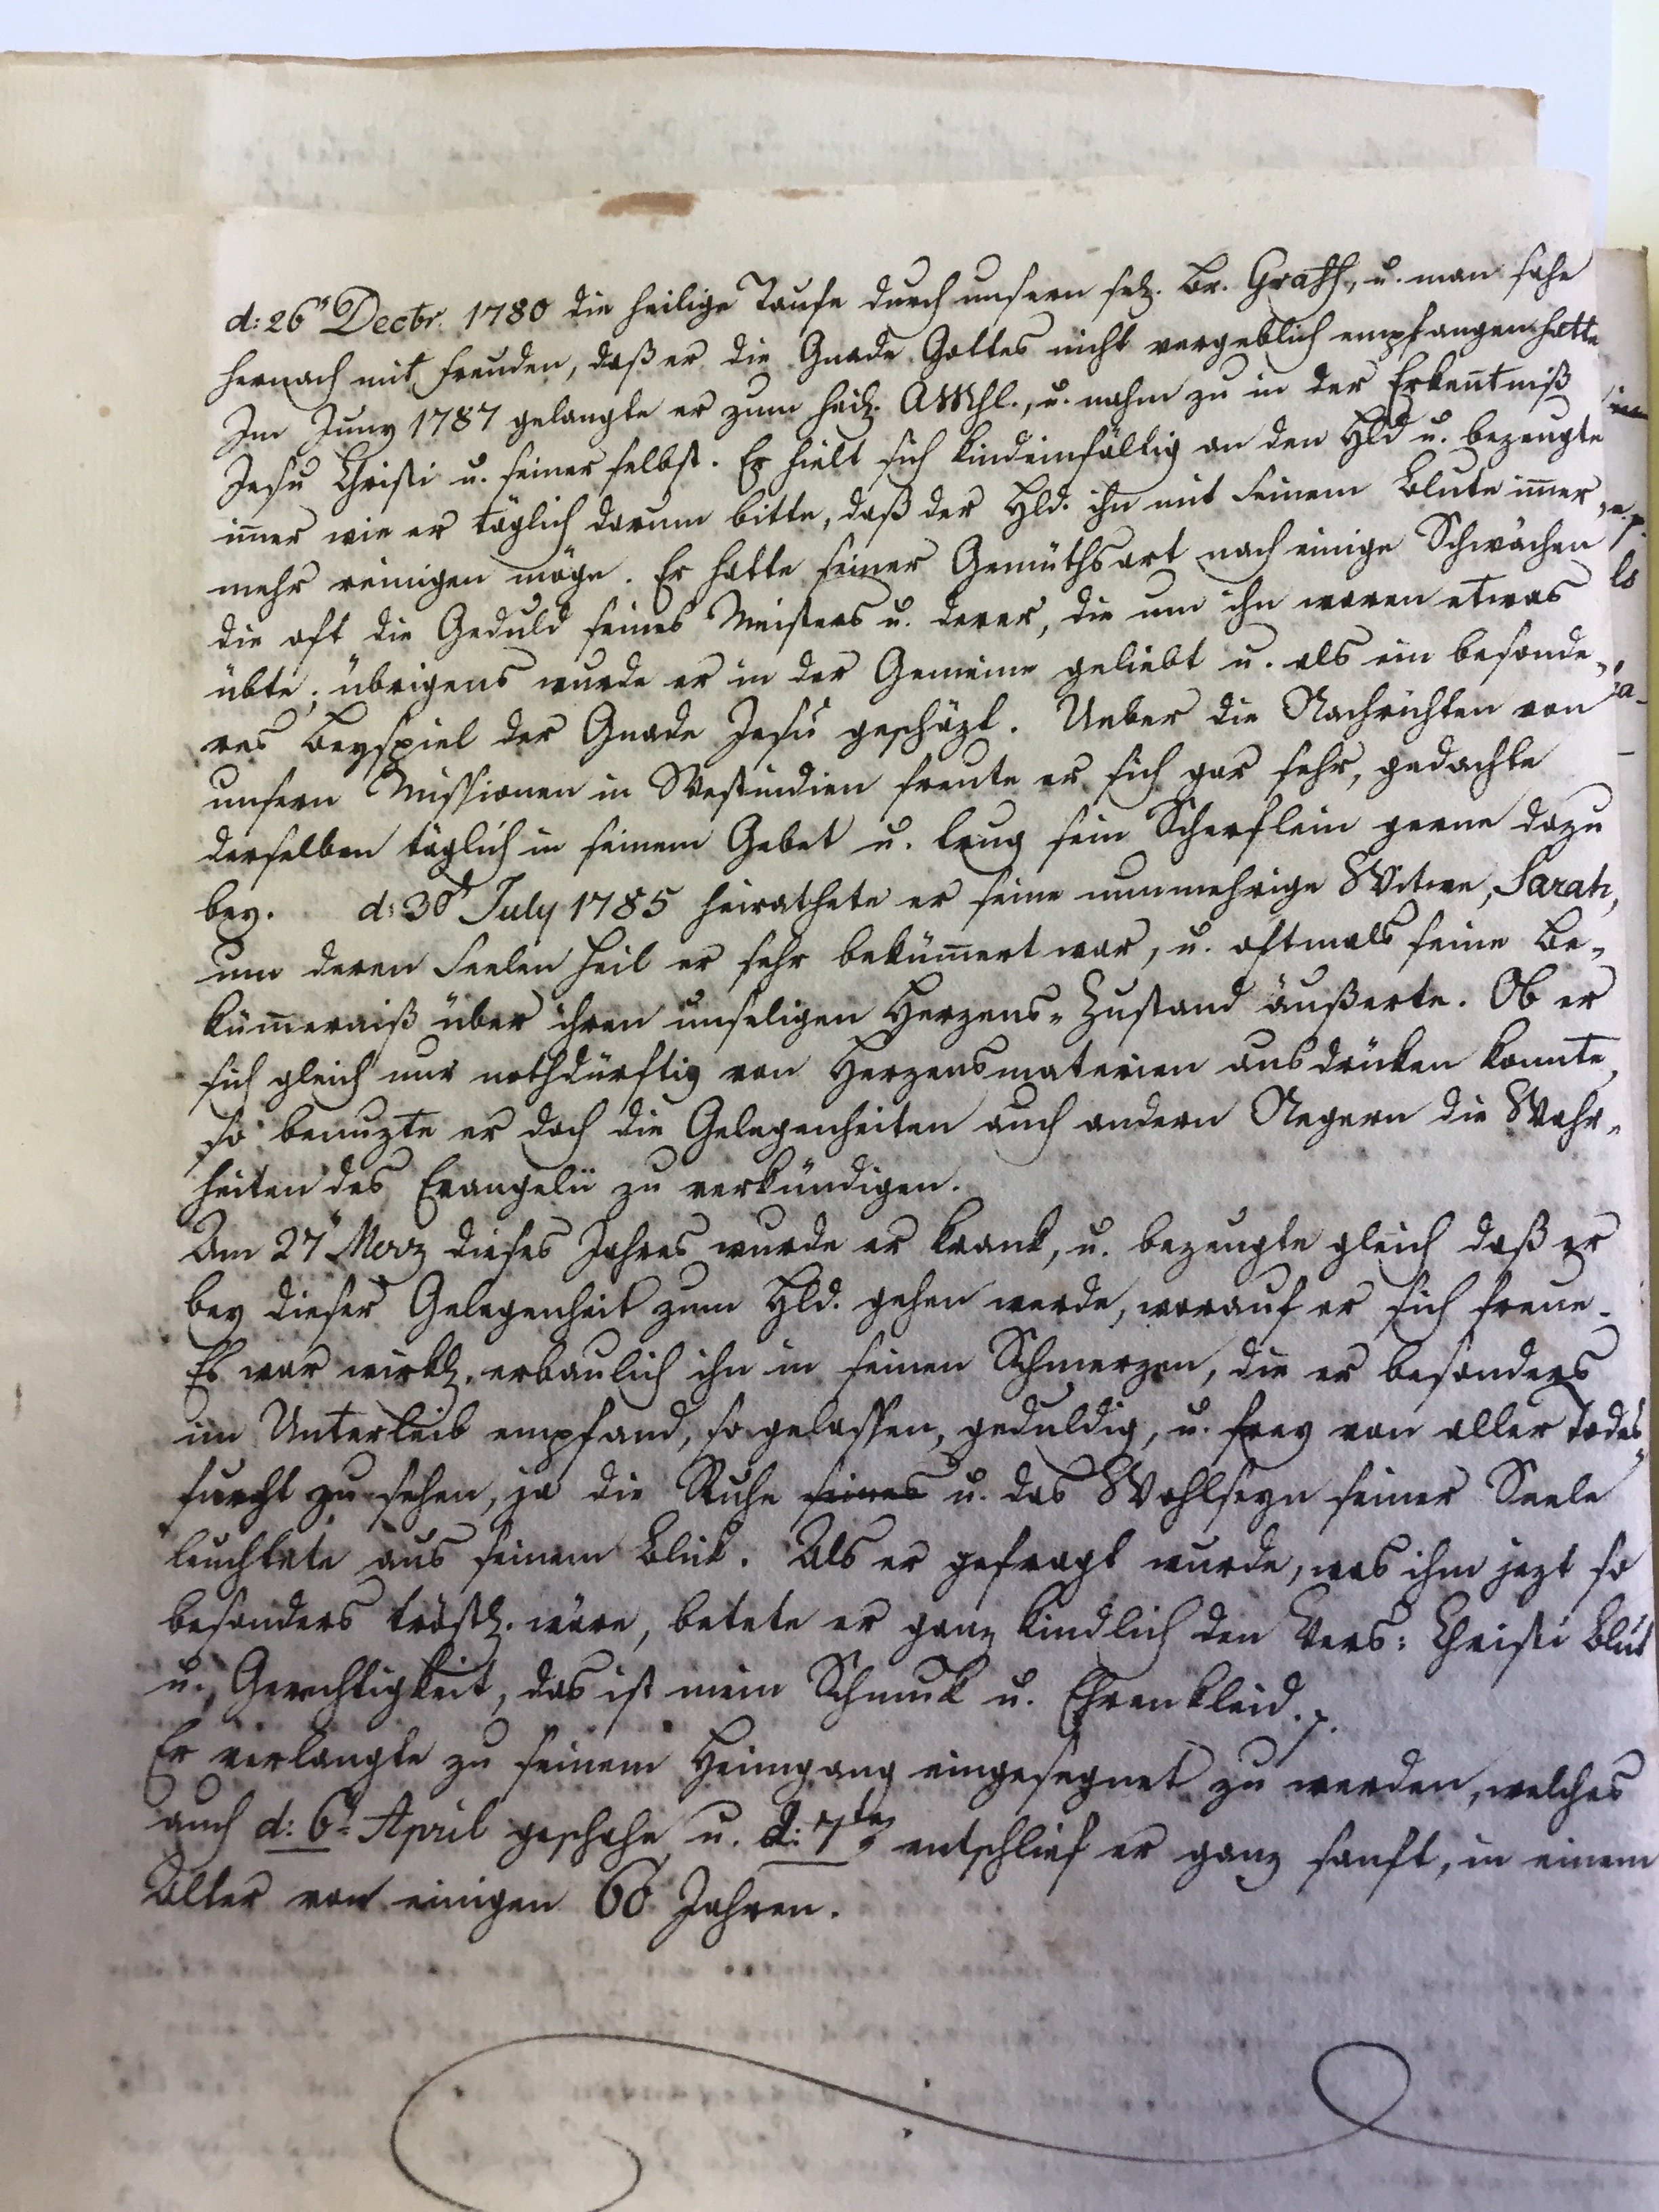 d: 26ⁿ Decbr. 1780 die heilige Taufe durch unsern sel. Br. Graff, u. man sahe
hernach mit Freuden, daß er die Gnade Gottes nicht vergeblich empfangen hatte
Im Juny 1787 gelangte er zum heil. AMhl., u. nahm zu in der Erkentniß
Jesu Christi u. seiner selbst. Er hielt sich kindeinfältig an den Hld u. bezeugte
imer wie er täglich darum bitte, daß der Hld. ihn mit Seinem Blute imer
mehr reinigen möge. Er hatte seiner Gemüthsart nach einige Schwächen
die oft die Geduld seines Meisters u. derer, die um ihn waren etwas
übte; übrigens wurde er in der Gemeine geliebt u. als ein besonde-
res Beyspiel der Gnade Jesu geschäzt. Ueber die Nachrichten von
unsern Missionen in Westindien freute er sich gar sehr, gedachte
derselben täglich in seinem Gebet u. trug sein Scherflein gerne dazu
bey. d: 30ⁿ July 1785 heirathete er seine nunmehrige Witwe, Sarah,
um deren Seelen Heil er sehr bekümert war, u. oftmals seine Be-
kümerniß über ihren unseligen Herzens-Zustand äußerte. Ob er
sich gleich nur nothdürftig von Herzensmaterien ausdrüken konnte,
so benuzte er doch die Gelegenheiten auch andern Negern die Wahr-
heiten des Evangelii zu verkündigen.
Am 27ⁿ Merz dieses Jahres wurde er krank, u. bezeugte gleich daß er
bey dieser Gelegenheit zum Hld. gehen werde, worauf er sich freue.
Es war wirkl. erbaulich ihn in seinen Schmerzen, die er besonders
im Unterleib empfand, so gelassen, geduldig, u. frey von aller Todes-
furcht zu sehen, ja die Ruhe seines u. das Wohlseyn seiner Seele
leuchtete aus seinem Blik. Als er gefragt wurde, was ihm jezt so
besonders tröstl. wäre, betete er ganz kindlich den Vers: Christi Blut
u. Gerechtigkeit, das ist mein Schmuk u. Ehrenkleid. p.
Er verlangte zu seinem Heimgang eingesegnet zu werden, welches
auch d: 6ⁿ April geschahe, u. d: 7ten entschlief er ganz sanft, in einem
Alter von einigen 60 Jahren.